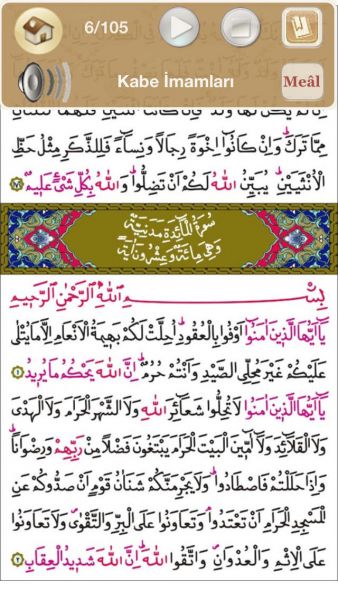 6/105
Kabe İmamları
Meâl
مِمَّا تَرَكَۜ وَاِنْ كَانُٓوا اِخْوَةً رِجَالًا وَنِسَٓاءً فَلِلذَّكَرِ مِثْلُ حَظِّ
الْاُنْثَيَيْنِۜ يُبَيِّنُ اللّٰهُ لَكُمْ اَنْ تَضِلُّواۜ وَاللّٰهُ بِكُلِّ شَيْءٍ عَل۪يمٌ
سُورَةُ الْمَٓائِدَةِ مَدَنِيَّةٌ
وَهِيَ مِائَةٌ وَعِشْرُونَ اٰيَةً
بِسْمِ اللّٰهِ الرَّحْمٰنِ الرَّح۪يمِ
يَٓا اَيُّهَا الَّذ۪ينَ اٰمَنُٓوا اَوْفُوا بِالْعُقُودِۜ اُحِلَّتْ لَكُمْ بَه۪يمَةُ الْاَنْعَامِ اِلَّا مَا يُتْلٰى
عَلَيْكُمْ غَيْرَ مُحِلِّي الصَّيْدِ وَاَنْتُمْ حُرُمٌۜ اِنَّ اللّٰهَ يَحْكُمُ مَا يُر۪يدُ ١
يَٓا اَيُّهَا الَّذ۪ينَ اٰمَنُوا لَا تُحِلُّوا شَعَٓائِرَ اللّٰهِ وَلَا الشَّهْرَ الْحَرَامَ وَلَا الْهَدْيَ
وَلَا الْقَلَٓائِدَ وَلَٓا آٰمّ۪ينَ الْبَيْتَ الْحَرَامَ يَبْتَغُونَ فَضْلًا مِنْ رَبِّهِمْ وَرِضْوَانًاۜ
وَاِذَا حَلَلْتُمْ فَاصْطَادُواۜ وَلَا يَجْرِمَنَّكُمْ شَنَاٰنُ قَوْمٍ اَنْ صَدُّوكُمْ عَنِ
الْمَسْجِدِ الْحَرَامِ اَنْ تَعْتَدُواۢ وَتَعَاوَنُوا عَلَى الْبِرِّ وَالتَّقْوٰىۖ وَلَا تَعَاوَنُوا
عَلَى الْاِثْمِ وَالْعُدْوَانِۖ وَاتَّقُوا اللّٰهَۜ اِنَّ اللّٰهَ شَد۪يدُ الْعِقَابِ ٢